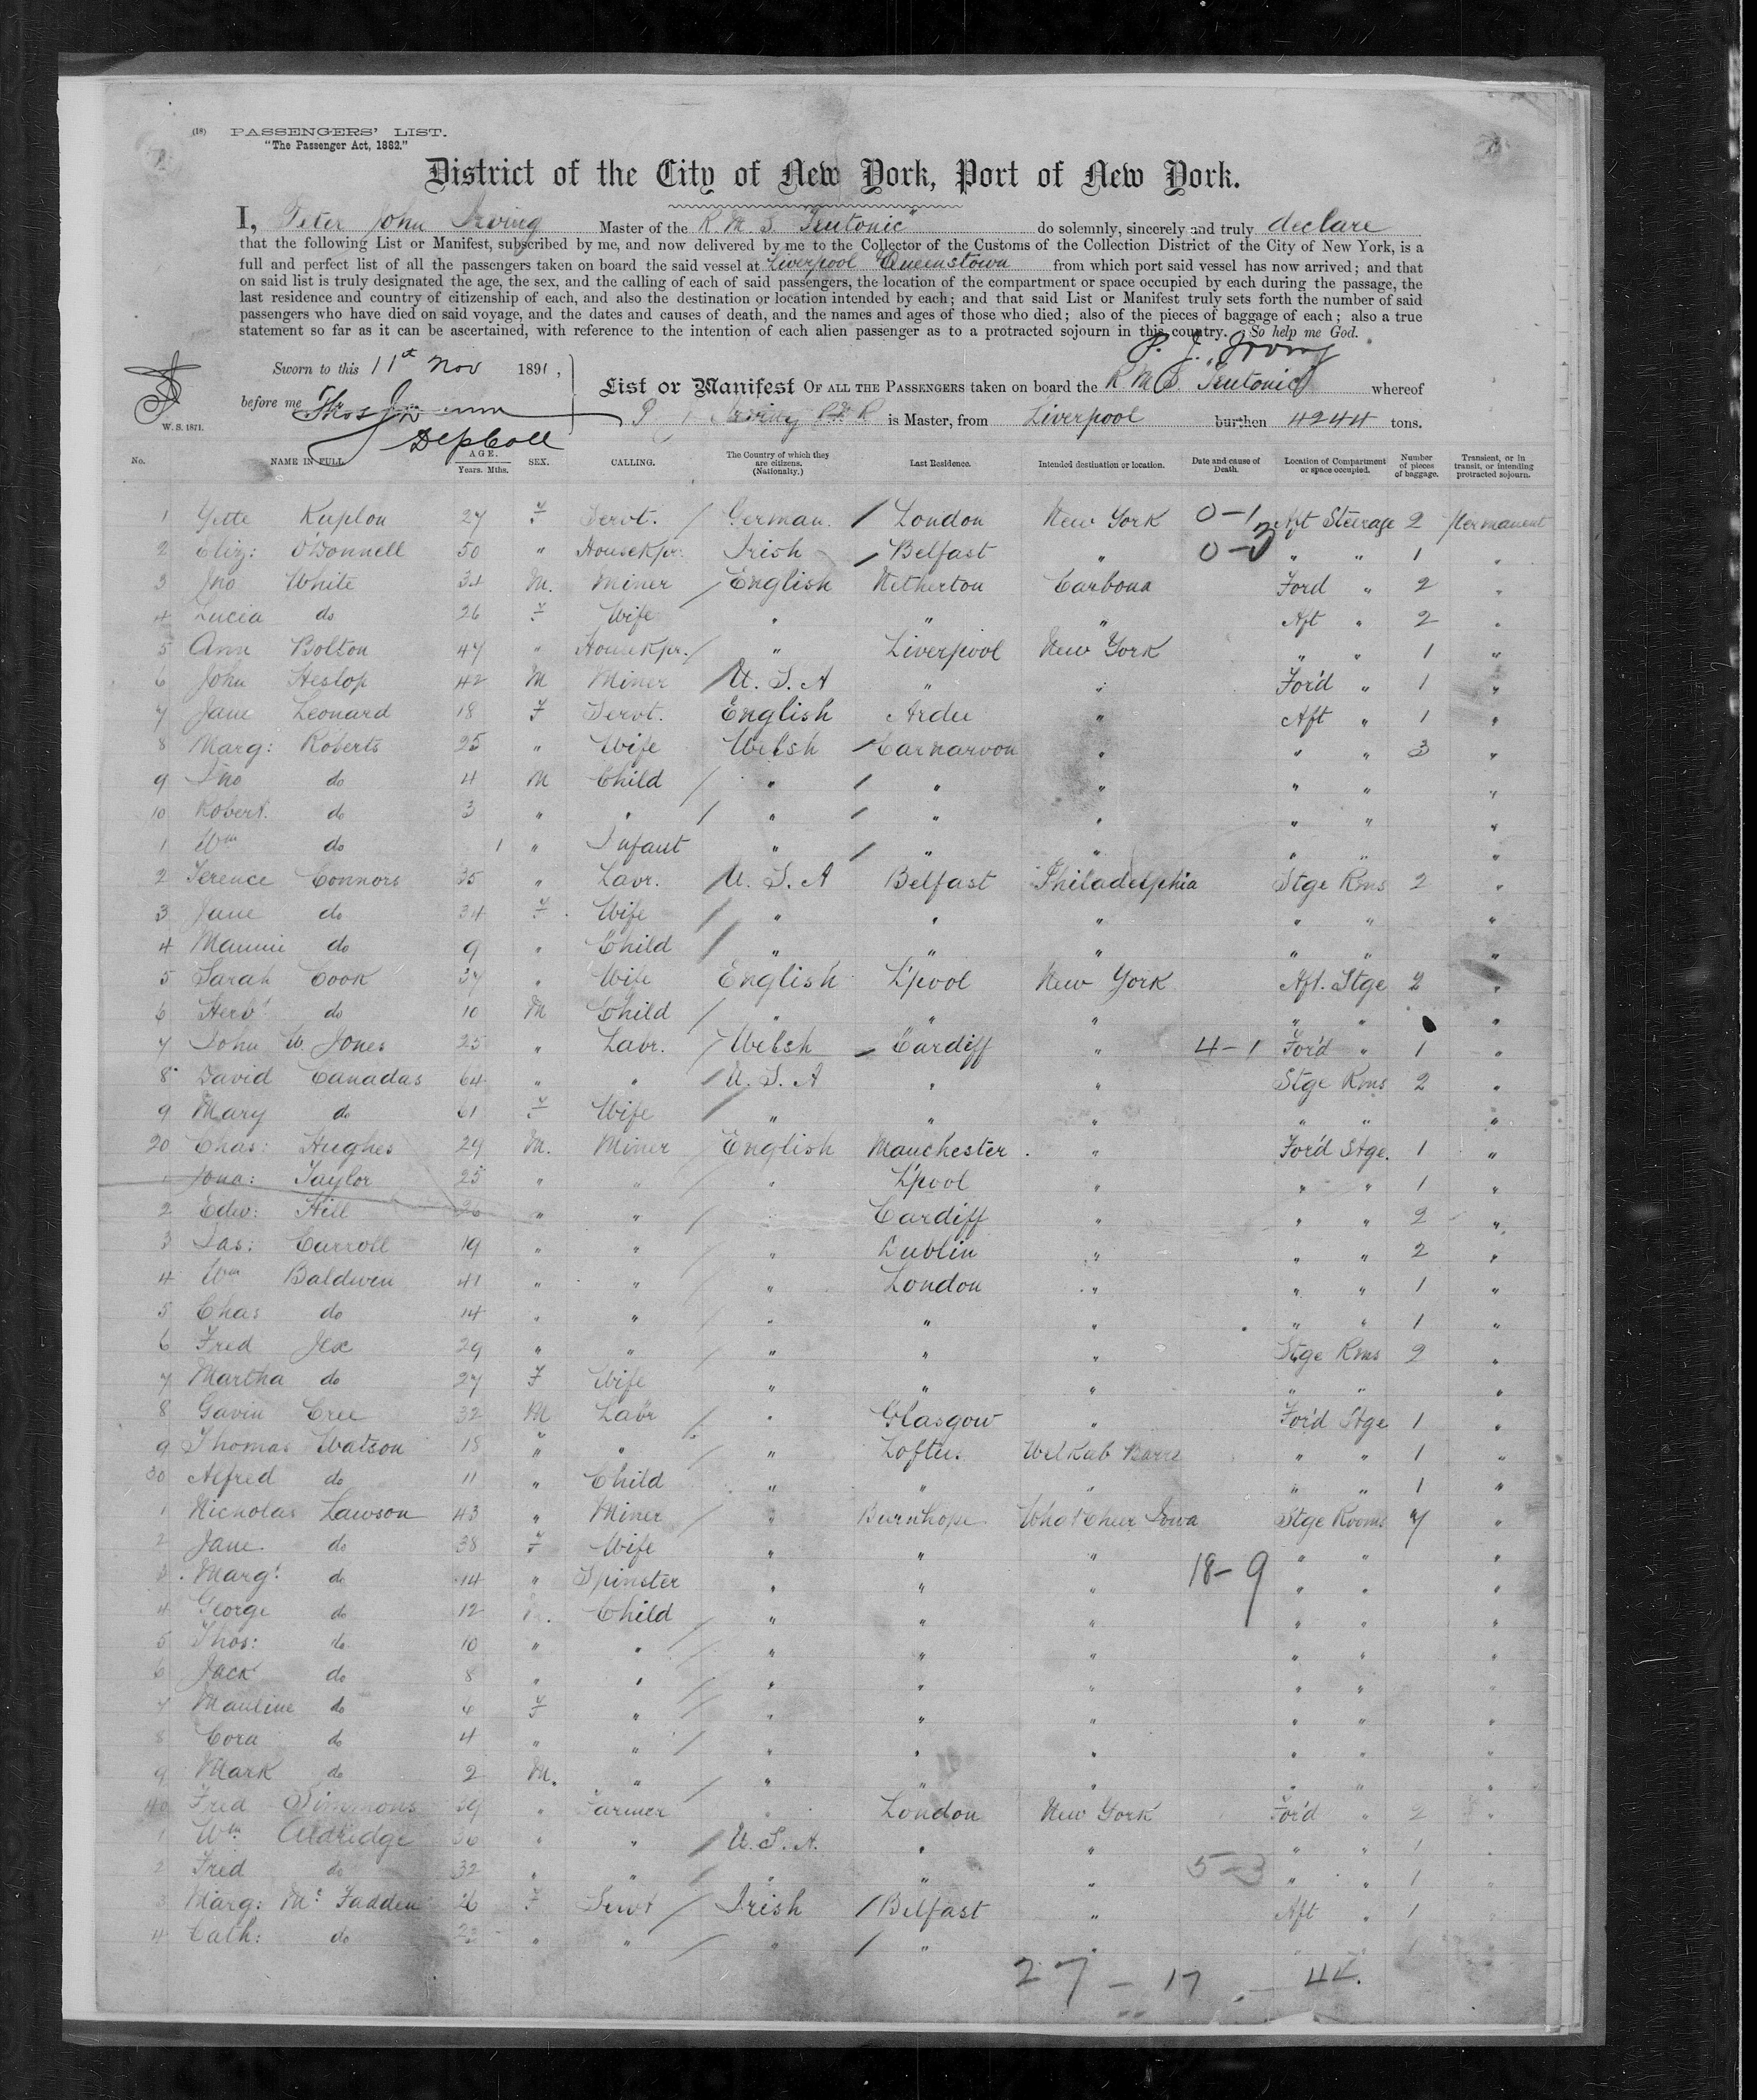 (18) PASSENGERS' LIST.
"The Passenger Act, 1882."
District of the City of New York, Port of New York.
I, Peter John Irving Master of the R.M.S. "Teutonic" do solemnly, sincerely and truly declare
that the following List or Manifest, subscribed by me, and now delivered by me to the Collector of the Customs of the Collection District of the City of New York, is a
full and perfect list of all the passengers taken on board the said vessel at Liverpool & Queenstown from which port said vessel has now arrived; and that
on said list is truly designated the age, the sex, and the calling of each of said passengers, the location of the compartment or space occupied by each during the passage, the
last residence and country of citizenship of each, and also the destination or location intended by each; and that said List or Manifest truly sets forth the number of said
passengers who have died on said voyage, and the dates and causes of death, and the names and ages of those who died; also of the pieces of baggage of each; also a true
statement so far as it can be ascertained, with reference to the intention of each alien passenger as to a protracted sojourn in this country. So help me God.
P. J. Irving
Sworn to this 11st Nov 1891,
before me Thos
Dep Coll
W. S. 1871.
List or Manifest OF ALL THE PASSENGERS taken on board the R M S Teutonic whereof
P J Irving R.N.R is Master, from Liverpool burthen 4244 tons.
No. NAME IN FULL. AGE. Years. Mths. SEX. CALLING. The Country of which they are citizens. (Nationality.) Last Residence. Intended destination or location. Date and cause of Death. Location of Compartment or space occupied. Number of pieces of baggage. Transient, or in transit, or intending protracted sojourn.
1 Yette Kuplon 27 F Servt. / German / London New York 0-1 Aft Steerage 2 Permanent
2 Eliz: O'Donnell 50 " Housekpr. Irish / Belfast " 0- " " 1 "
3 Jno White 34 M. Miner / English Netherton Carbona Ford " 2 "
4 Lucia do 26 F Wife " " " Aft " 2 "
5 Ann Bolton 47 " Housekpr. / " Liverpool New York " " 1 "
6 John Heslop 42 M Miner / U. S. A " " For'd " 1 "
7 Jane Leonard 18 F Servt. English Ardee " Aft " 1 "
8 Marg: Roberts 25 " Wife Welsh / Carnarvon " " " 3 "
9 Jno do 4 M Child / " / " " " " "
10 Robert. do 3 " " / " / " " " " "
1 Wm do 1 " Infant " / " " " " "
2 Terence Connors 35 " Labr. / U. S. A Belfast Philadelphia Stge Rms 2 "
3 Jane do 34 F Wife / " " " " " "
4 Mamie do 9 " Child / " " " " " "
5 Sarah Cook 37 " Wife English L'pool New York Aft. Stge 2 "
6 Herbt do 10 M Child / " " " " " "
7 John W Jones 25 " Labr. / Welsh / Cardiff " 4-1 For'd " 1 "
8 David Canadas 64 " " / U. S. A " " Stge Rms 2 "
9 Mary do 61 F Wife / " " " " " "
20 Chas: Hughes 29 M. Miner English Manchester " For'd Stge. 1 "
1 Jona: Taylor 25 " " / " L'pool " " " 1 "
2 Edw: Hill 26 " " / " Cardiff " " " 2 "
3 Jas: Carroll 19 " " / " Dublin " " " 2 "
4 Wm Baldwin 41 " " / " London " " " 1 "
5 Chas do 14 " " / " " " " " 1 "
6 Fred Jex 29 " " / " " " Stge Rms 2 "
7 Martha do 27 F Wife " " " " " "
8 Gavin Cree 32 M Labr / " Glasgow " For'd Stge 1 "
9 Thomas Watson 18 " " / " Loftus. Welkab Barre " " 1 "
30 Alfred do 11 " Child " " " " " 1 "
1 Nicholas Lawson 43 " Miner / " Burnhope What Cheer Iowa Stge Rooms 7 "
2 Jane do 38 F Wife " " " " " "
3 Margt do 14 " Spinster " " " 18-9 " " "
4 George do 12 M. Child / " " " " " "
5 Thos: do 10 " " / " " " " " "
6 Jack do 8 " " / " " " " " "
7 Mauline do 6 F " / " " " " " "
8 Cora do 4 " " / " " " " " "
9 Mark do 2 M. " / " " " " " "
40 Fred Simmons 39 " Farmer " London New York For'd " 2 "
1 Wm Aldridge 36 " " / U. S. A. " " " " 1 "
2 Fred do 32 " " / " " " 5-3 " " 1 "
3 Marg: McFadden 26 F Servt / Irish / Belfast " Aft " 1 "
4 Cath: do 22 " " / " / " " " " 1
27 - 17 - 44.